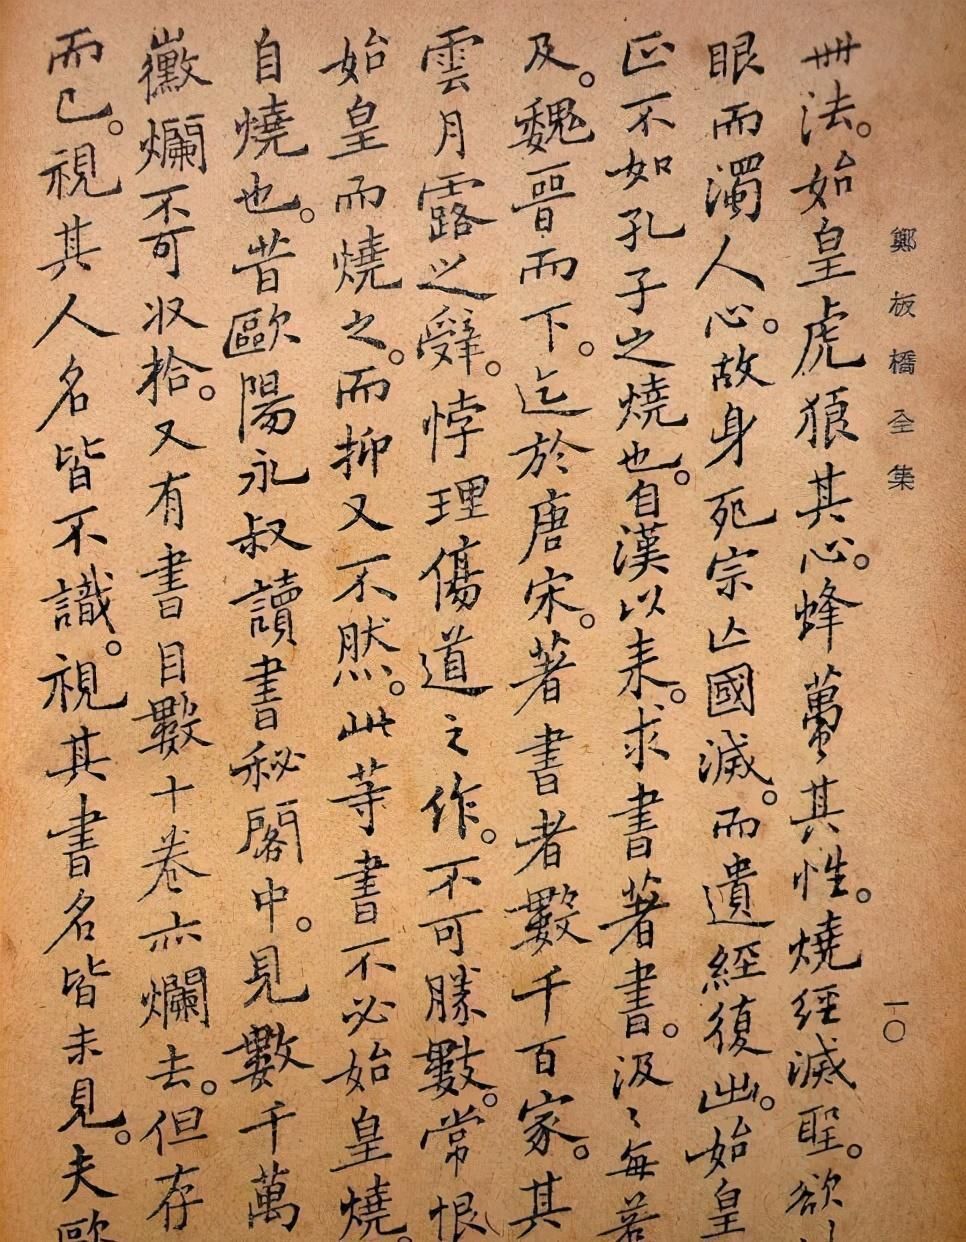 鄭板橋全集
一〇
丗法。始皇虎狼其心。蜂蠆其性。燒經滅聖。欲
眼而濁人心。故身死宗亾國滅。而遺經復出。始皇
正不如孔子之燒也。自漢以来。求書著書。汲〻每若
及。魏晋而下。迄於唐宋。著書者數千百家。其
雲月露之辭。悖理傷道之作。不可勝數。常恨
始皇而燒之。而抑又不然。此等書不必始皇燒。
自燒也。昔歐陽永叔讀書秘閣中。見數千萬
黴爛不可収拾。又有書目數十卷亦爛去。但存
而已。視其人名皆不識。視其書名皆未見。夫歐